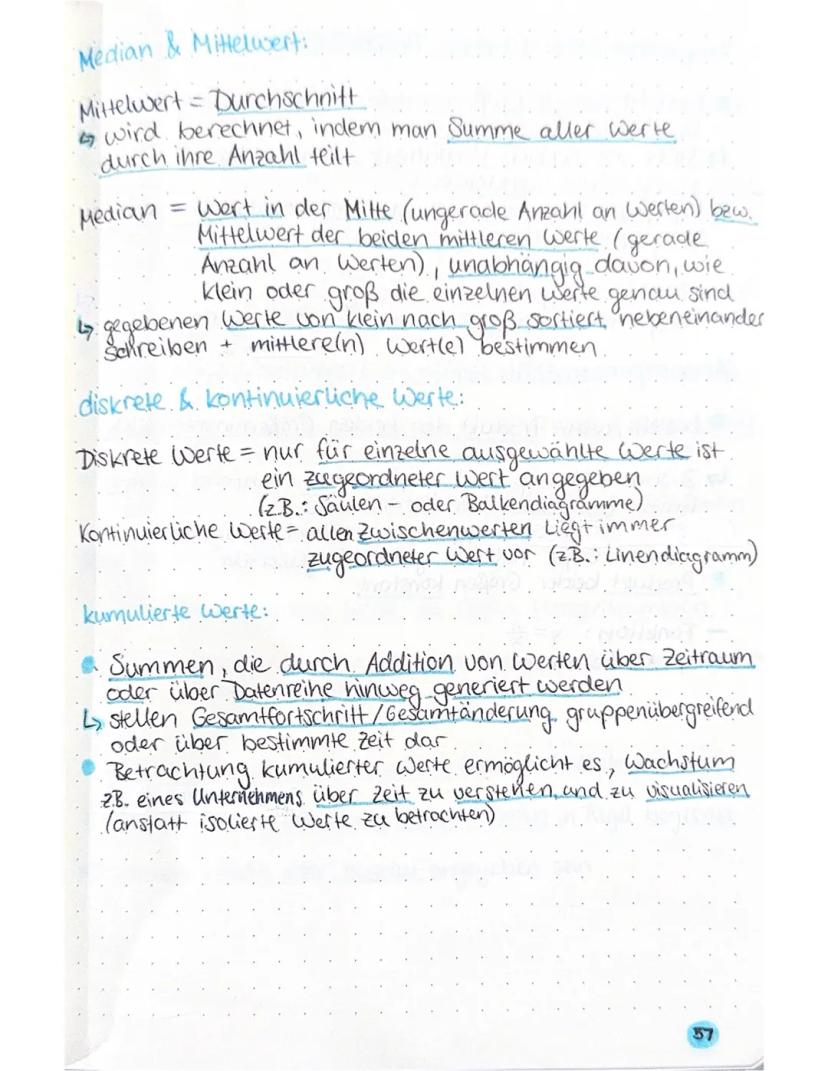 Median & Mittelwert:
Mittelwert = Durchschnitt
↳ wird berechnet, indem man Summe aller Werte
durch ihre Anzahl teilt
Median = Wert in der Mitte (ungerade Anzahl an Werten) bzw.
Mittelwert der beiden mittleren Werte (gerade
Anzahl an Werten), unabhängig davon, wie
klein oder groß die einzelnen Werte genau sind
↳ gegebenen Werte von klein nach groß sortiert nebeneinander
schreiben + mittlere(n) Wert(e) bestimmen
diskrete & kontinuierliche Werte:
Diskrete Werte = nur für einzelne ausgewählte Werte ist
ein zugeordneter Wert angegeben
(z.B.: Säulen- oder Balkendiagramme)
Kontinuierliche Werte = allen Zwischenwerten liegt immer
zugeordneter Wert vor (z.B.: Linendiagramm)
kumulierte Werte:
• Summen, die durch Addition von Werten über Zeitraum
oder über Datenreihe hinweg generiert werden
↳ stellen Gesamtfortschritt/Gesamtänderung gruppenübergreifend
oder über bestimmte Zeit dar
• Betrachtung kumulierter Werte ermöglicht es, Wachstum
z.B. eines Unternehmens über Zeit zu verstehen und zu visualisieren
(anstatt isolierte Werte zu betrachten)
57